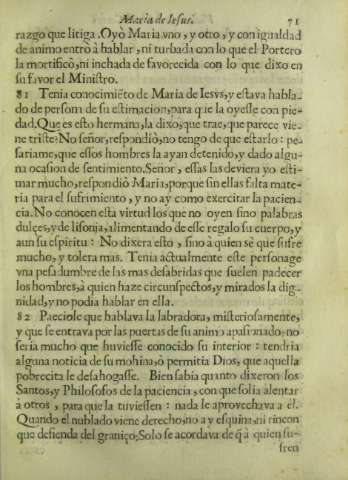 Maria de Iesus. 71
razgo que litiga. Oyò Maria vno, y otro, y con igualdad
de animo entrò à hablar, ni turbada con lo que el Portero
la mortificò, ni inchada de favorecida con lo que dixo en
su favor el Ministro.
81 Tenia conocimiẽto de Maria de Iesvs, y estava habla-
do de persona de su estimacion, para que la oyesse con pie-
dad. Que es esto hermana, la dixo, que trae, que parece vie-
ne triste? No señor, respondiò, no tengo de que estarlo: pe-
sariame, que essos hombres la ayan detenido, y dado algu-
na ocasion de sentimiento. Señor, essas las deviera yo esti-
mar mucho, respondiò Maria, porque sin ellas falta mate-
ria para el sufrimiento, y no ay como exercitar la pacien-
cia. No conocen esta virtud los que no oyen sino palabras
dulces, y de lisonja, alimentando de esse regalo su cuerpo, y
aun su espiritu: No dixera esto, sino à quien sè que sufre
mucho, y tolera mas. Tenia actualmente este personage
vna pesadumbre de las mas desabridas que suelen padecer
los hombres, à quien haze circunspectos, y mirados la dig-
nidad, y no podia hablar en ella.
82 Paeciole que hablava la labradora, misteriosamente,
y que se entrava por las puertas de su animo apasionado: no
seria mucho que huviesse conocido su interior: tendria
alguna noticia de su mohina, ò permitia Dios, que aquella
pobrecita le desahogasse. Bien sabia quanto dixeron los
Santos, y Philosofos de la paciencia, con que solia alentar
à otros, para que la tuviessen: nada le aprovechava à el.
Quando el nublado viene derecho, no a y esquina, ni rincon
que defienda del graniço. Solo se acordava de q̃ à quien su-
fren